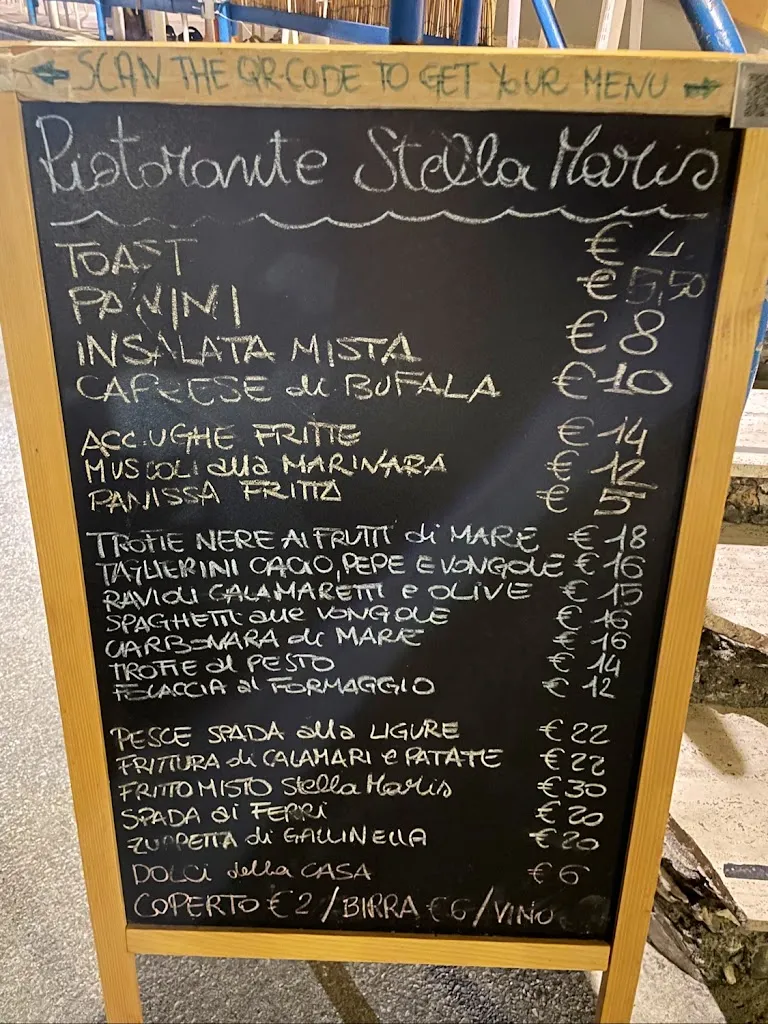 SCAN THE QR-CODE TO GET YOUR MENU
Ristorante Stella Maris
TOAST € 4
PANINI € 5,50
INSALATA MISTA € 8
CAPRESE di BUFALA € 10
ACCIUGHE FRITTE € 14
MUSCOLI alla MARINARA € 12
PANISSA FRITTA € 5
TROFIE NERE AI FRUTTI di MARE € 18
TAGLIERINI CACIO, PEPE E VONGOLE € 16
RAVIOLI CALAMARETTI e OLIVE € 15
SPAGHETTI alle VONGOLE € 16
CARBONARA di MARE € 16
TROFIE al PESTO € 14
FOCACCIA al FORMAGGIO € 12
PESCE SPADA alla LIGURE € 22
FRITTURA di CALAMARI e PATATE € 22
FRITTO MISTO Stella Maris € 30
SPADA ai FERRI € 20
ZUPPETTA di GALLINELLA € 20
DOLCI della CASA € 6
COPERTO € 2 / BIRRA € 6 / VINO